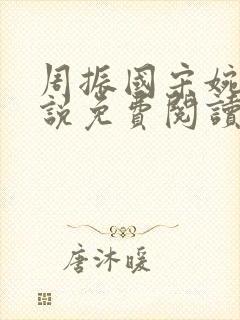 周振國宋婉
說免費閱讀
唐沐暖